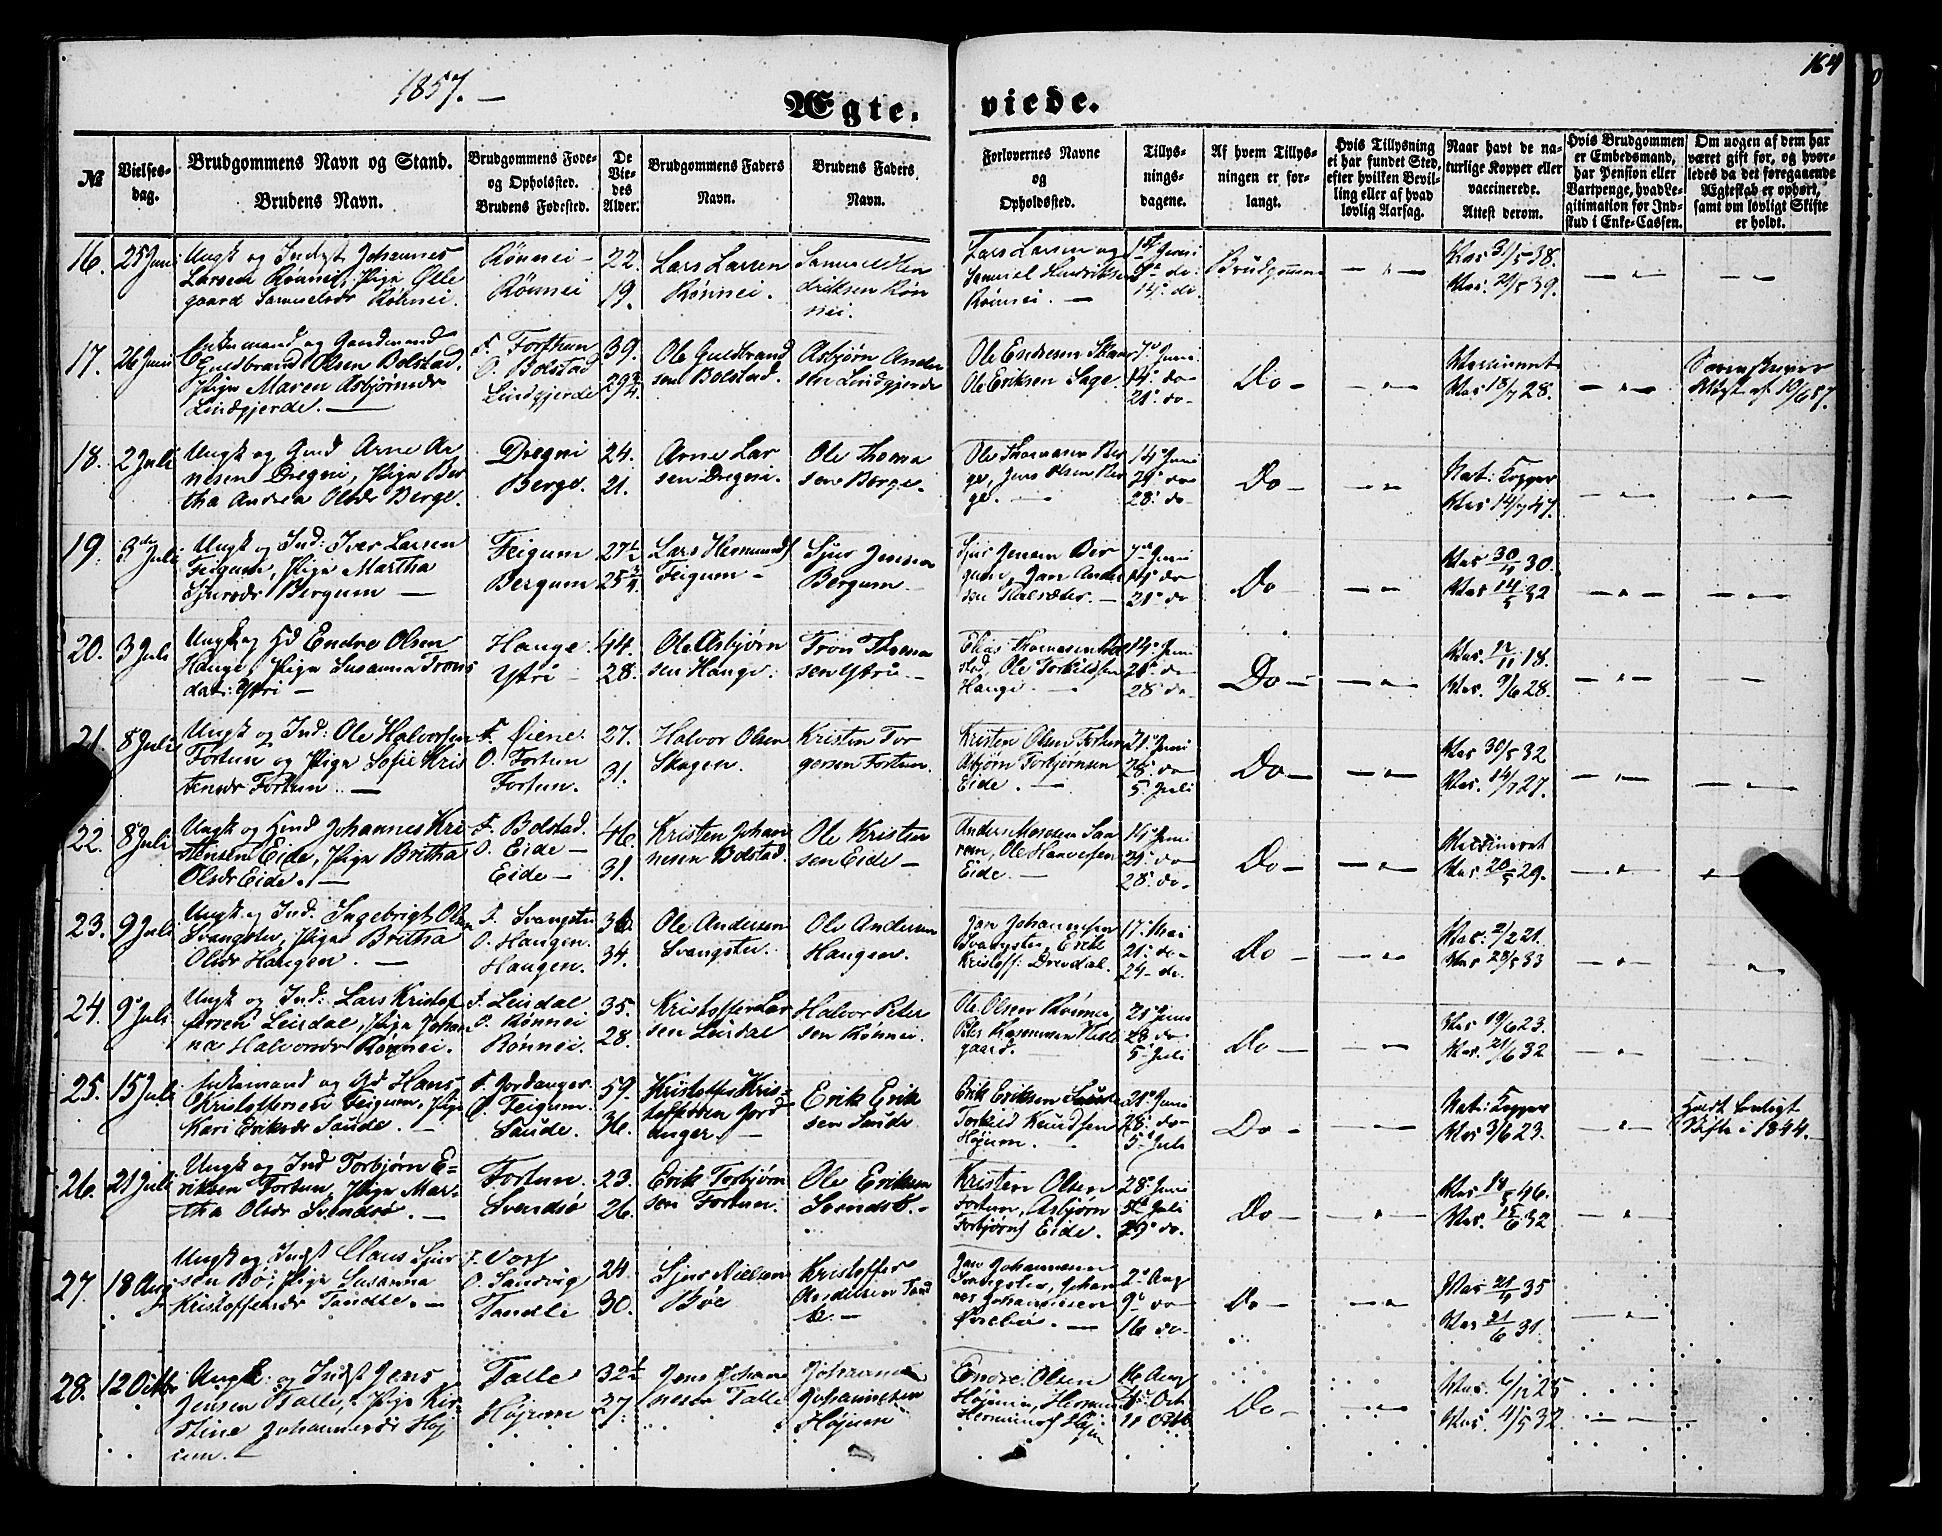 1857. —
164
Ægte. viede.
№
Vielses-
dag.
Brudgommens Navn og Stand.
Brudens Navn.
Brudgommens Føde-
og Opholdssted.
Brudens Fødested.
De
Vie-
des
Alder.
Brudgommens Faders
Navn.
Brudens Faders
Navn.
Forlovernes Navne
og
Opholdssted.
Tillys-
nings-
dagene.
Af hvem Tillys-
ningen er for-
langt.
Hvis Tillysning
ei har fundet Sted,
efter hvilken Bevil-
ling eller af hvad
lovlig Aarsag.
Naar havt de na-
turlige Kopper eller
vaccinerede.
Attest derom.
Hvis Brudgommen
er Embedsmand,
har Pension eller
Vartpenge, hvad Le-
gitimation for Ind-
skud i Enke-Cassen.
Om nogen af dem har
været gift før, og hvor-
ledes da det foregaaende
Ægteskab er ophørt,
samt om lovligt Skifte
er holdt.
16. 25 Juni
Ungk og Indst Johannes
Larsen Rønnei, Pige Olle
gaard Samuelsdr Rønnei.
Rønnei —
Rønnei
22.
19.
Lars Larsen
Rønnei.
Samuel Hen
driksen Røn
nei.
Lars Larsen og
Samuel Hendriksen
Rønnei. —
1st Juni
do
14. do.
Brudgommen
Vac 3/5 38.
Vac. 21/5 39.
17. 26 Juni
Enkemand og Gaardmand
Guldbrand Olsen Bolstad.
Pige Maren Asbjørnsdr
Lindgjerde. —
F. Forthun
O. Bolstad
Lindgjerde
39.
29 3/4.
Ole Guldbrand
sen Bolstad.
Asbjørn Ander
sen Lindgjerde
Ole Endresen Skaar
Ole Eriksen Sage.
7. Juni
14. do
21. do
Do —
Vaccineret
Vac 18/7 28.
Sorenskriver
Attest af 10/6 57.
18. 2 Juli
Ungk og Gmd Arne Ar
nesen Dregni, Pige Ber
tha Andrea Olsdr Berge.
Dregni
Berge.
24.
21.
Arne Lar
sen Dregni.
Ole Thoma
sen Berge.
Ole Thomasen Ber
ge, Jens Olsen Ber
ge. —
14. Juni
21. do
28. do
Do —
Nat: Kopper
Vac 14/7 47.
19. 3de Juli
Ungk og Ind: Iver Larsen
Feigum, Pige Martha
Sjursdr Bergum —
Feigum
Bergum
27 1/2
25 3/4.
Lars Hermunds
Feigum —
Sjur Jensen
Bergum.
Sjur Jensen Ber
gum, Jan Ander
sen
7. Juni
14. do
21. do
Do —
Vac 30/4 30.
Vac 14/5 32
20. 3 Juli
Ungk og Gd Endre Olsen
Hauge, Pige Susanna Trons
datr: Ytri —
Hauge
Ytri —
44.
28.
Ole Asbjørn
sen Hauge.
Tron Thoma
sen Ytri —
Elias Thomassen
stad, Ole Torkildsen
Hauge. —
14. Juni
21. do
28. do
Do —
Vac. 12/11 18.
Vac. 9/6 28.
21. 8 Juli
Ungk og Ind: Ole Halvorsen
Fortun og Pige Sofie Kris
tensdr Fortun. —
F. Øiene.
O. Fortun
Fortun.
27.
31.
Halvor Olsen
Skagen.
Kristen Tor
gersen Fortun.
Kristen Olsen Fortun
Asbjørn Torbjørnsen
Eide. —
21. Juni
28. do
5. Juli
Do —
Vac 30/5 32
Vac. 14/7 27.
22. 8 Juli
Ungk og Gmd Johannes Kri
stensen Eide, Pige Britha
Olsdr Eide. —
F. Bolstad.
O. Eide —
Eide —
46.
31.
Kristen Johan
nesen Bolstad.
Ole Kristen
sen Eide —
Anders
Ole
Eide. —
14. Juni
21. do
28. do
Do —
Vaccineret
Vac. 20/5 29.
23. 9 Juli
Ungk og Ind: Ingebrigt Olsen
Svangstu, Pige Britha
Olsdr Haugen. —
F. Svangstu
O. Haugen.
Haugen.
36.
34.
Ole Andersen
Svangstu.
Ole Andersen
Haugen.
Jan Johannesen
Svangstu, Erik
Kristoff: Drevdal.
17. Mai
21. do
24. do.
Do —
Vac. 2/2 21.
Vac 28/5 33
24. 9 Juli
Ungk og Ind: Lars Kristof
fersen Leirdal, Pige Johan
na Halvorsdr Rønnei.
F. Leirdal
O. Rønnei
Rønnei.
35.
28.
Kristoffer Lar
sen Leirdal
Halvor Peter
sen Rønnei.
Ole Olsen Rønnei
Peder Rasmussen
gaard.
21. Juni
28. do
5. Juli
Do —
Vac 19/6 23.
Vac. 21/6 32
25. 15 Juli
Enkemand og Gd Hans
Kristoffersen Feigum, Pige
Kari Eriksdr Saude. —
F. Jordanger.
O. Feigum.
Saude.
59.
36.
Kristoffer Kris-
toffersen Jord
anger. —
Erik Erik
sen Saude
Erik Eriksen Saude
Torkild Knudsen
Højum. —
21. Juni
28. do
5. Juli
Do —
Nat: Kopper
Vac 3/6 23.
Holdt lovligt
Skifte i 1844.
26. 21 Juli
Ungk og Ind Torbjørn E=
riksen Fortun, Pige Mar-
tha Olsdr Svendsø. —
Fortun.
Svendsø
23.
26.
Erik Torbjørn
sen Fortun.
Ole Eriksen
Svendsø. —
Kristen Olsen
Fortun, Asbjørn
Torbjørns Eide.
28. Juni
5. Juli
do.
Do —
Vac 14/5 46.
Vac. 15/6 32
27. 18 Aug
Ungk og Indst Claus Sjur
sen Bø, Pige Susanna
Kristoffersdr Tandle. —
F. Vors
O. Sandvig
Tandle
24.
30.
Sjur Nielsen
Bøe
Kristoffer
Andersen Tand
le. —
Jan Johannesen
Svangstu, Johan
nes Johannesen
2. Aug
9. do
16 do.
Do —
Vac 21/4 35
Vac 21/6 31.
28. 12 Octbr
Ungk: og Indst Jens
Jensen Talle, Pige Kir
stine Johannesdr Høj
um. —
Talle
Højum
32 1/2
27.
Jens Johan
nesen Talle
Johannes
Johannesen
Højum
Endre Olsen
Højum, Hermund
Hermunds Højum
16 Aug
4. Oct
11 Octb
Do —
Vac. 6/7 25
Vac. 4/5 32.